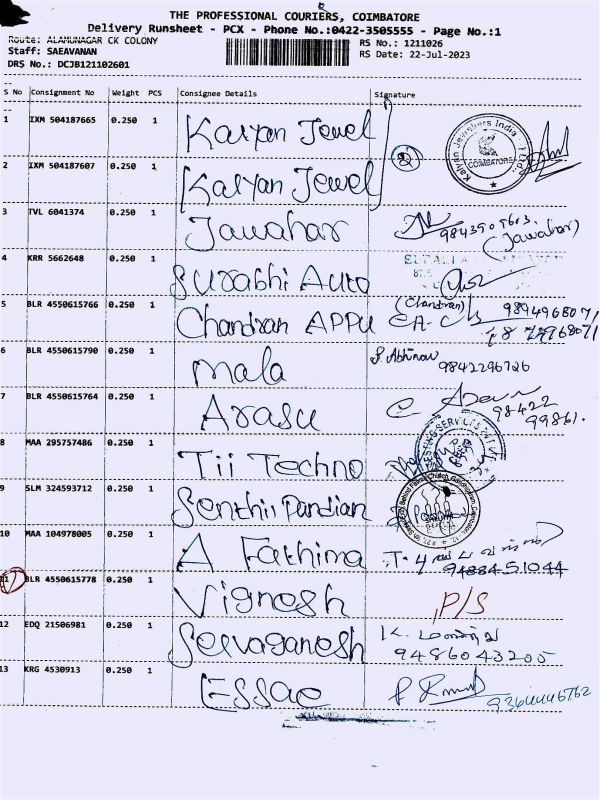 THE PROFESSIONAL COURIERS, COIMBATORE
Delivery Runsheet - PCX - Phone No.:0422-3505555 - Page No.:1
Route: ALAMUNAGAR CK COLONY
RS No.: 1211026
Staff: SAEAVANAN
RS Date: 22-Jul-2023
DRS No.: DCJB121102601
S No Consignment No Weight PCS Consignee Details Signature
1 IXM 504187665 0.250 1 Kalyan Jewel
Kalyan Jewellers India COIMBATORE
2 IXM 504187607 0.250 1 Kalyan Jewel
2
3 TVL 6041374 0.250 1 Jawahar
(Jawahar)
4 KRR 5662648 0.250 1 Surabhi Auto
5 BLR 4550615766 0.250 1 Chandran APPU
(Chandran)
6 BLR 4550615790 0.250 1 Mala
S. Abhinav 9842296726
7 BLR 4550615764 0.250 1 Arasu
98422 99861.
8 MAA 295757486 0.250 1 Tii Techno
9 SLM 324593712 0.250 1 Senthil Pandian
10 MAA 104978005 0.250 1 A Fathima
9488451044
11 BLR 4550615778 0.250 1 Vignesh P/S
12 EDQ 21506981 0.250 1 Selvaganesh
9486043205
13 KRG 4530913 0.250 1 ESSAE